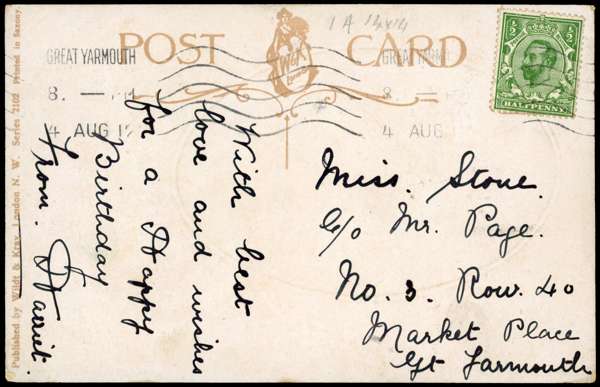 Published by Wildt & Kray London N. W. Series 2102 Printed in Saxony.
POST CARD
W&K
London
1 A 1414
GREAT YARMOUTH
8. — PM
4 AUG 12
GREAT YARM
8.
4 AUG
½ ½
HALFPENNY
With best
love and wishes
for a Happy
Birthday
From. Harriet.
Miss. Stone.
C/o Mr. Page.
No. 3. Row. 40
Market Place
Gt Yarmouth